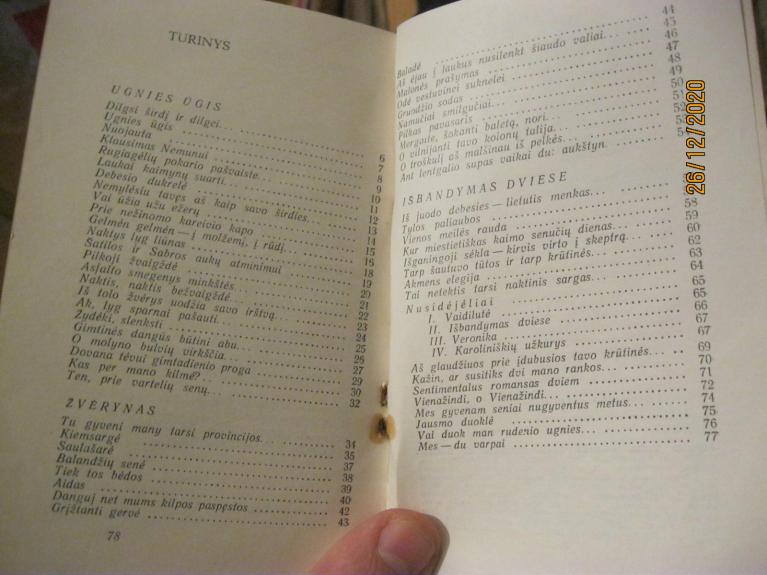 TURINYS
UGNIES ŪGIS
Dilgsi širdį ir dilgei...
Ugnies ūgis 6
Nuojauta 7
Klausimas Nemunui 8
Rugiagėlių pokario pašvaistė... 9
Laukai kaimynų suarti... 10
Debesio dukrelė 11
Nemylėsiu tavęs aš kaip savo širdies... 12
Vai ūžia užu ežerų 13
Prie nežinomo kareivio kapo 14
Gelmėn gelmėn — į molžemį, į rūdį... 15
Naktys lyg liūnas 16
Satilos ir Sabros aukų atminimui 18
Pilkoji žvaigždė 19
Asfalto smegenys minkštės... 20
Naktis, naktis bežvaigždė... 21
Iš tolo žvėrys uodžia savo irštvą... 22
Ak, lyg sparnai pašauti... 23
Žydėki, slenksti 24
Gimtinės dangūs būtini abu... 25
O molyno bulvių virkščia... 26
Dovana tėvui gimtadienio proga 27
Kas per mano kilmė?... 29
Ten, prie vartelių senų... 30
32
ŽVĖRYNAS
Tu gyveni many tarsi provincijos... 34
Kiemsargė 35
Saulašarė 37
Balandžių senė 38
Tiek tos bėdos 39
Aidas 40
Danguj net mums kilpos paspęstos 42
Grįžtanti gervė 43
78
Baladė 44
Aš ėjau į laukus nusilenkt šiaudo valiai... 45
Malonės prašymas 46
Odė vestuvinei suknelei 47
Gruodžio sodas 48
Namučiai smilgučiai... 49
Pilkas pavasaris 50
Mergaitė, šokanti baletą, nori... 51
O vilnijanti tavo kojonų talija... 52
O troškulį aš malšinau iš pelkės... 53
Ant tentgalio supas vaikai du: aukštyn.
IŠBANDYMAS DVIESE
Iš juodo debesies — lietutis menkas...
Tylos paliaubos 58
Vienos meilės rauda 59
Kur miestietiškas kaimo senučių dienas... 60
Išganingoji sėkla — kirvis virto į skeptrą... 62
Tarp šautuvo tūtos ir tarp krūtinės... 63
Akmens elegija 64
Tai netektis tarsi naktinis sargas... 65
Nusidėjėliai 65
I. Vaidilutė 66
II. Išbandymas dviese 67
III. Veronika 67
IV. Karoliniškių užkurys 69
Aš glaudžiuos prie įdubusios tavo krūtinės... 70
Kažin, ar susitiks dvi mano rankos... 71
Sentimentalus romansas dviem 72
Vienažindi, o Vienažindi... 74
Mes gyvenam seniai nugyventus metus... 75
Jausmo duoklė 76
Vai duok man rudenio ugnies... 77
Mes — du varpai
26/12/2020